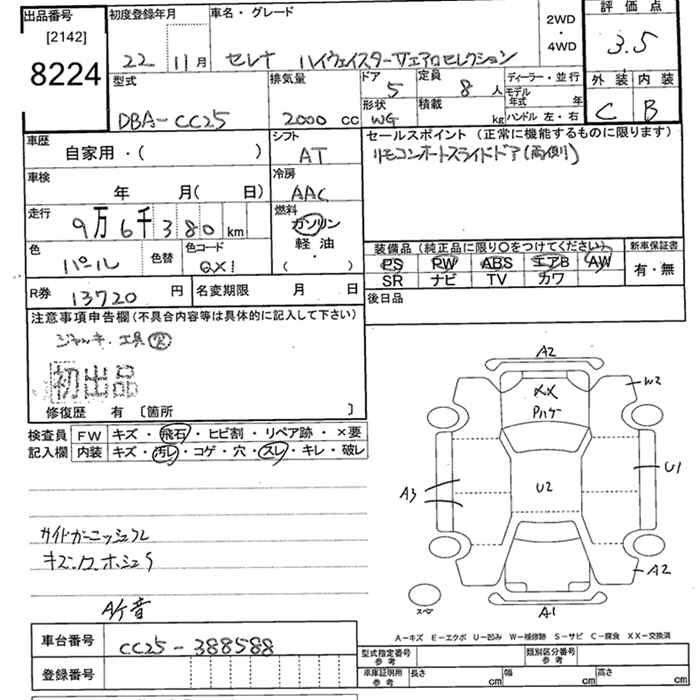 出品番号 初度登録年月 車名・グレード 2WD・4WD 評価点
[2142]
8224
22 11月 セレナ ハイウェイスターVエアロセレクション 3.5
型式 排気量 ドア 定員 ディーラー・並行 外装 内装
DBA-CC25 2000 cc 5 8人 モデル年式 年
形状 WG 積載 kg ハンドル 左・右 C B
車歴 シフト セールスポイント (正常に機能するものに限ります)
自家用・( ) AT リモコンオートスライドドア(両側)
車検 冷房
年 月( 日) AAC
走行 燃料
9万6千380km ガソリン
軽油
・( )
色 色替 色コード 装備品 (純正品に限り○をつけてください) 新車保証書
パール QX1 PS PW ABS エアB AW 有・無
SR ナビ TV カワ
R券 13720円 名変期限 月 日 後日品
注意事項申告欄(不具合内容等は具体的に記入して下さい)
ジャッキ・工具
初出品
修復歴 有 [箇所 ]
検査員 FW キズ・飛石・ヒビ割・リペア跡・×要
記入欄 内装 キズ・汚レ・コゲ・穴・スレ・キレ・破レ
A2
XX
W2
U1
A3
U2
A2
A1
スペ
車台番号 CC25-388588
登録番号
A-キズ E-エクボ U-凹み W-補修跡 S-サビ C-腐食 XX-交換済
型式指定番号 参考 類別区分番号 参考
車庫証明用 参考 長さ cm 幅 cm 高さ cm